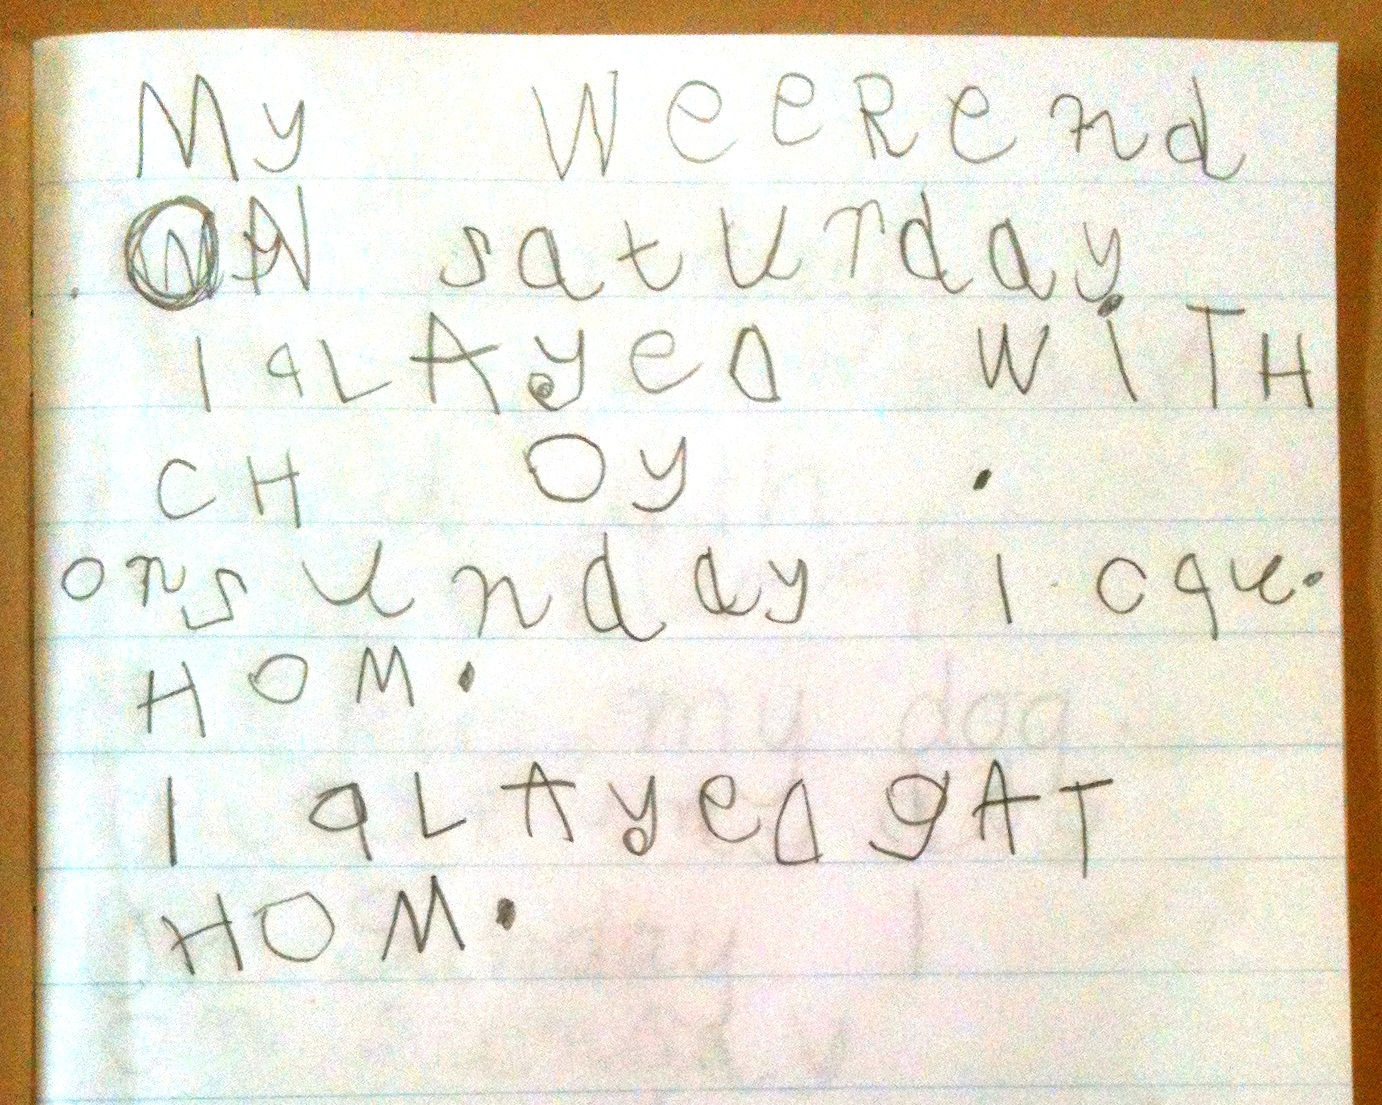 My WeeRend
ON saturday
I qLAyeD WiTH
CH Oy .
on sunday I cque.
HOM.
I qLAyeD gAT
HOM.